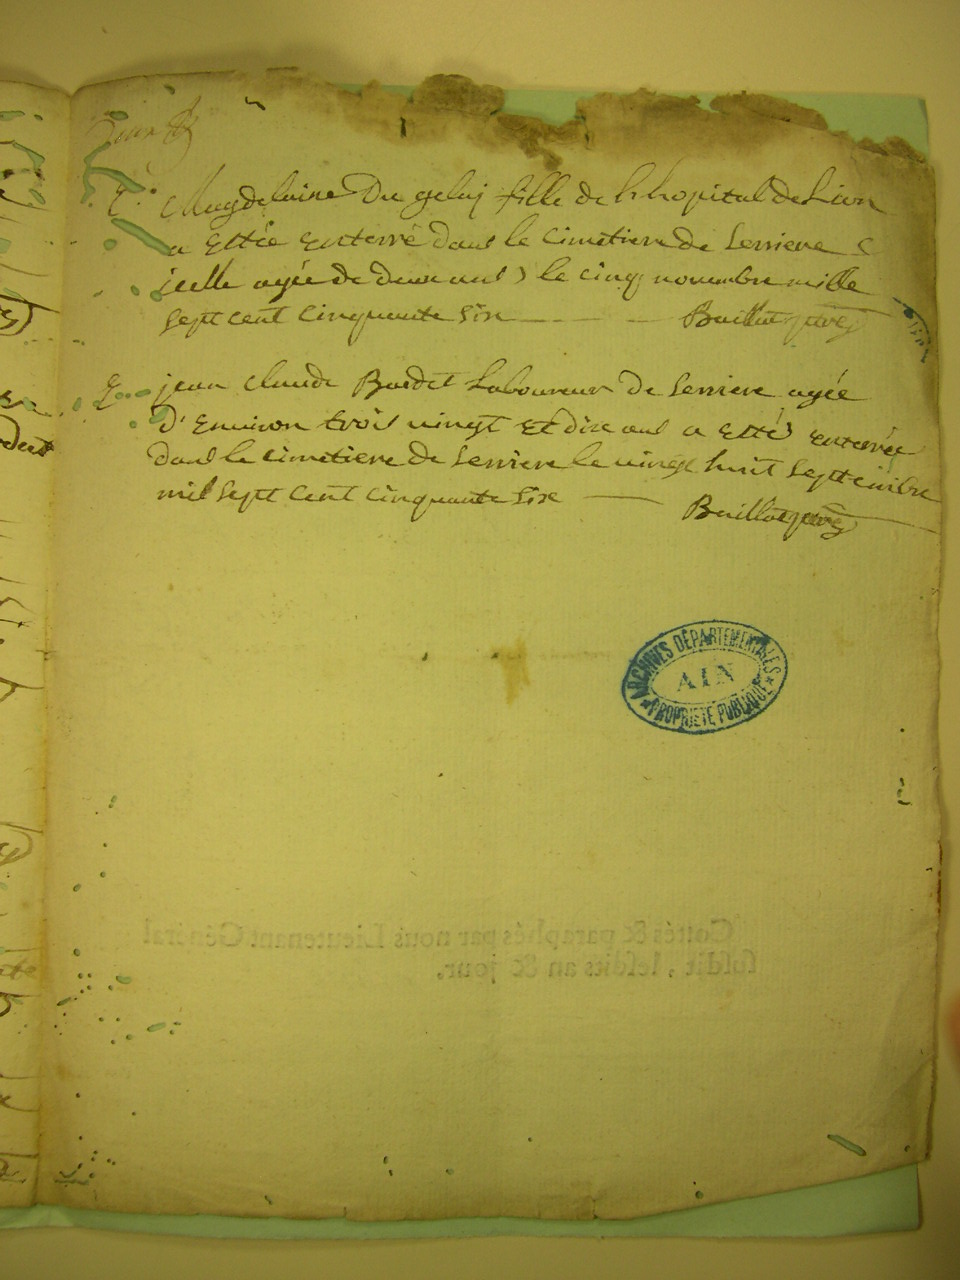 Magdelaine Du geluj fille de Lhopital de Lion
a Ettée enterré dans le cimetiere de Serriere
icelle agée de deux ans le cinq novembre mille
sept cent cinquante six Baillat
jean Claude Bordet Laboureur de Serriere agée
D'Environ trois vingt Et dix ans a Ettés enterrée
dans le cimetiere de Serriere le vingt huit Septembre
mil sept cent cinquante six Baillat
ARCHIVES DÉPARTEMENTALES
AIN
PROPRIÉTÉ PUBLIQUE
Cottés & paraphés par nous Lieutenant Général
susdit, lesdits an & jour.